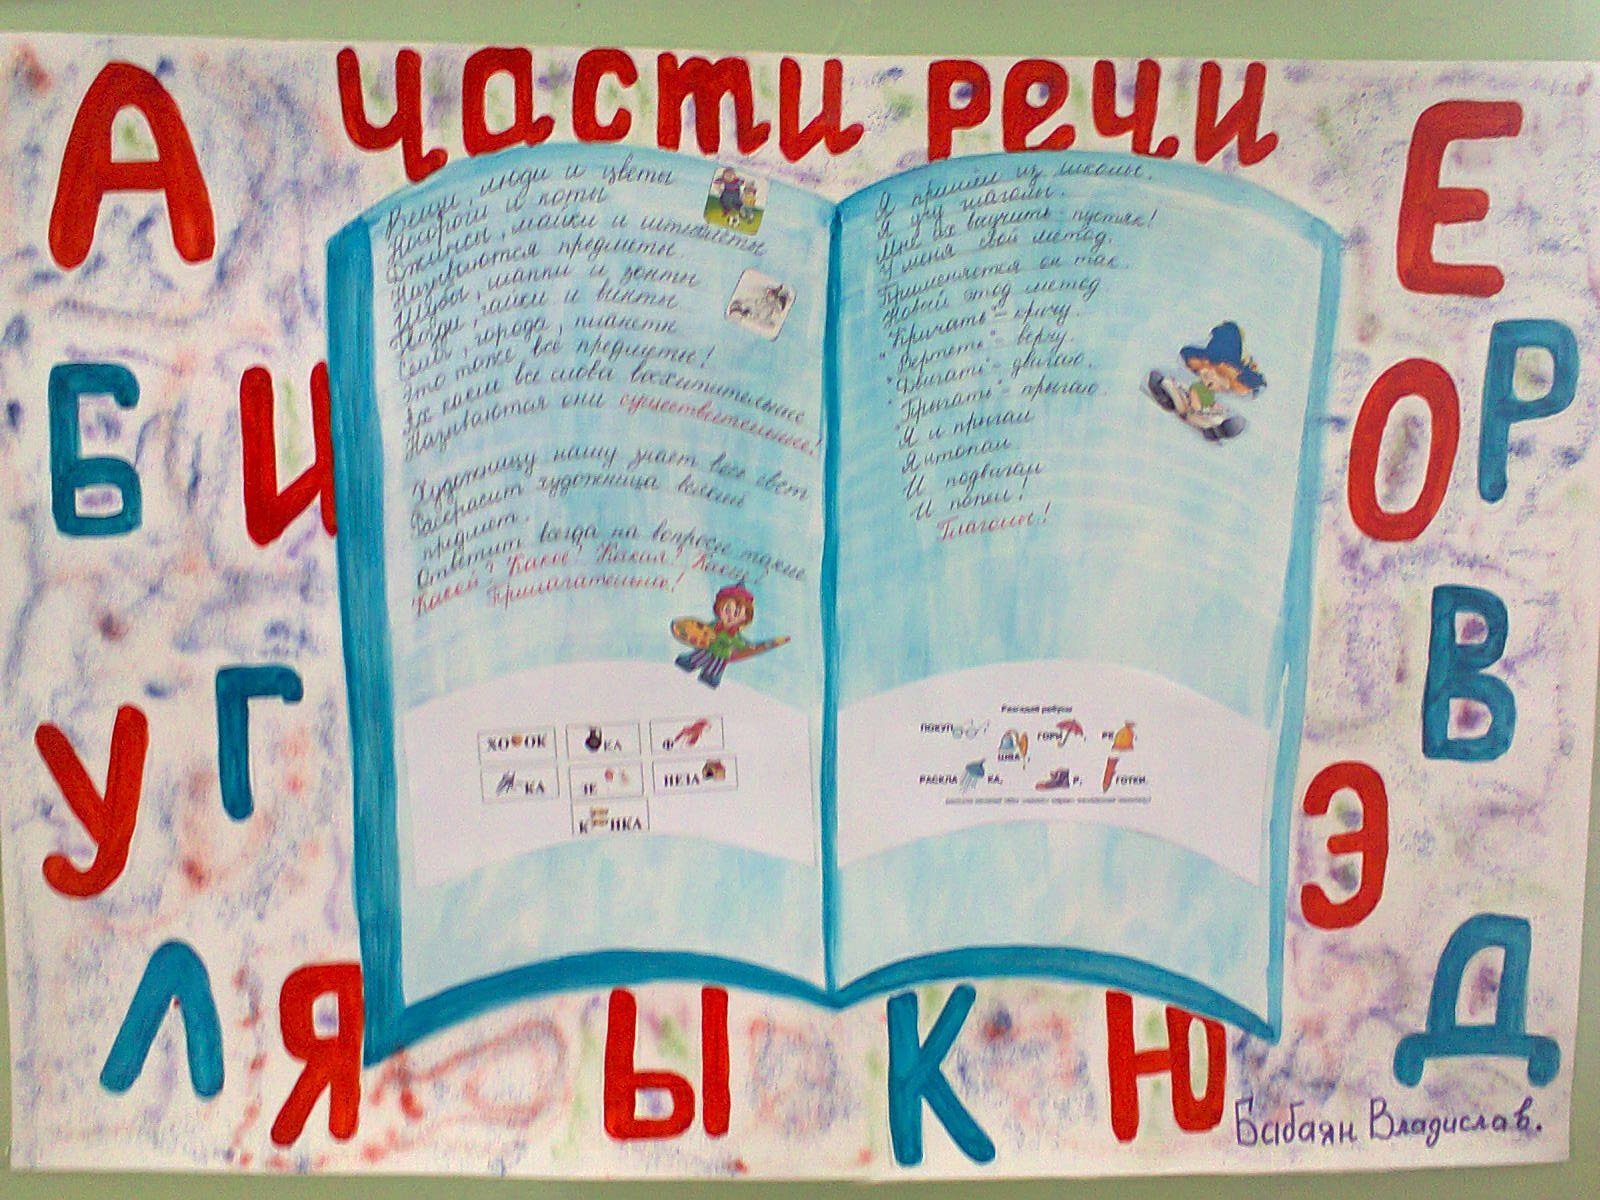 Части речи
А
Е
Б
И
О
Р
У
Г
В
Э
Л
Я
Ы
К
Ю
Д
Вещи, люди и цветы
Носороги и коты
Джинсы, майки и штиблеты
Называются предметы.
Шубы, шапки и зонты
Гвозди, гайки и винты
Сёла, города, планеты
Это тоже всё предметы!
Ах какие все слова восхитительные
Называются они существительные!
Художницу нашу знает весь свет
Раскрасит художница всякий
предмет.
Ответит всегда на вопросы такие
Какой? Какое? Какая? Какие?
Прилагательные!
ХО ОК
КА
Ф
КА
ЗЕ
НЕЗА
К НКА
Я пришёл из школы.
Я учу глаголы.
Мне их выучить - пустяк!
У меня свой метод.
Применяется он так
Новый этод метод
"Кричать" - кричу.
"Вертеть" - верчу.
"Двигать" - двигаю.
"Прыгать" - прыгаю.
Я и прыгал
Я и топал
И подвигал
И попел!
Глаголы!
Разгадай ребусы
ПОКУП
ГОРИ
РЕ
ШВА
РАСКЛА КА,
Р,
ГОТКИ.
Бабаян Владислав.